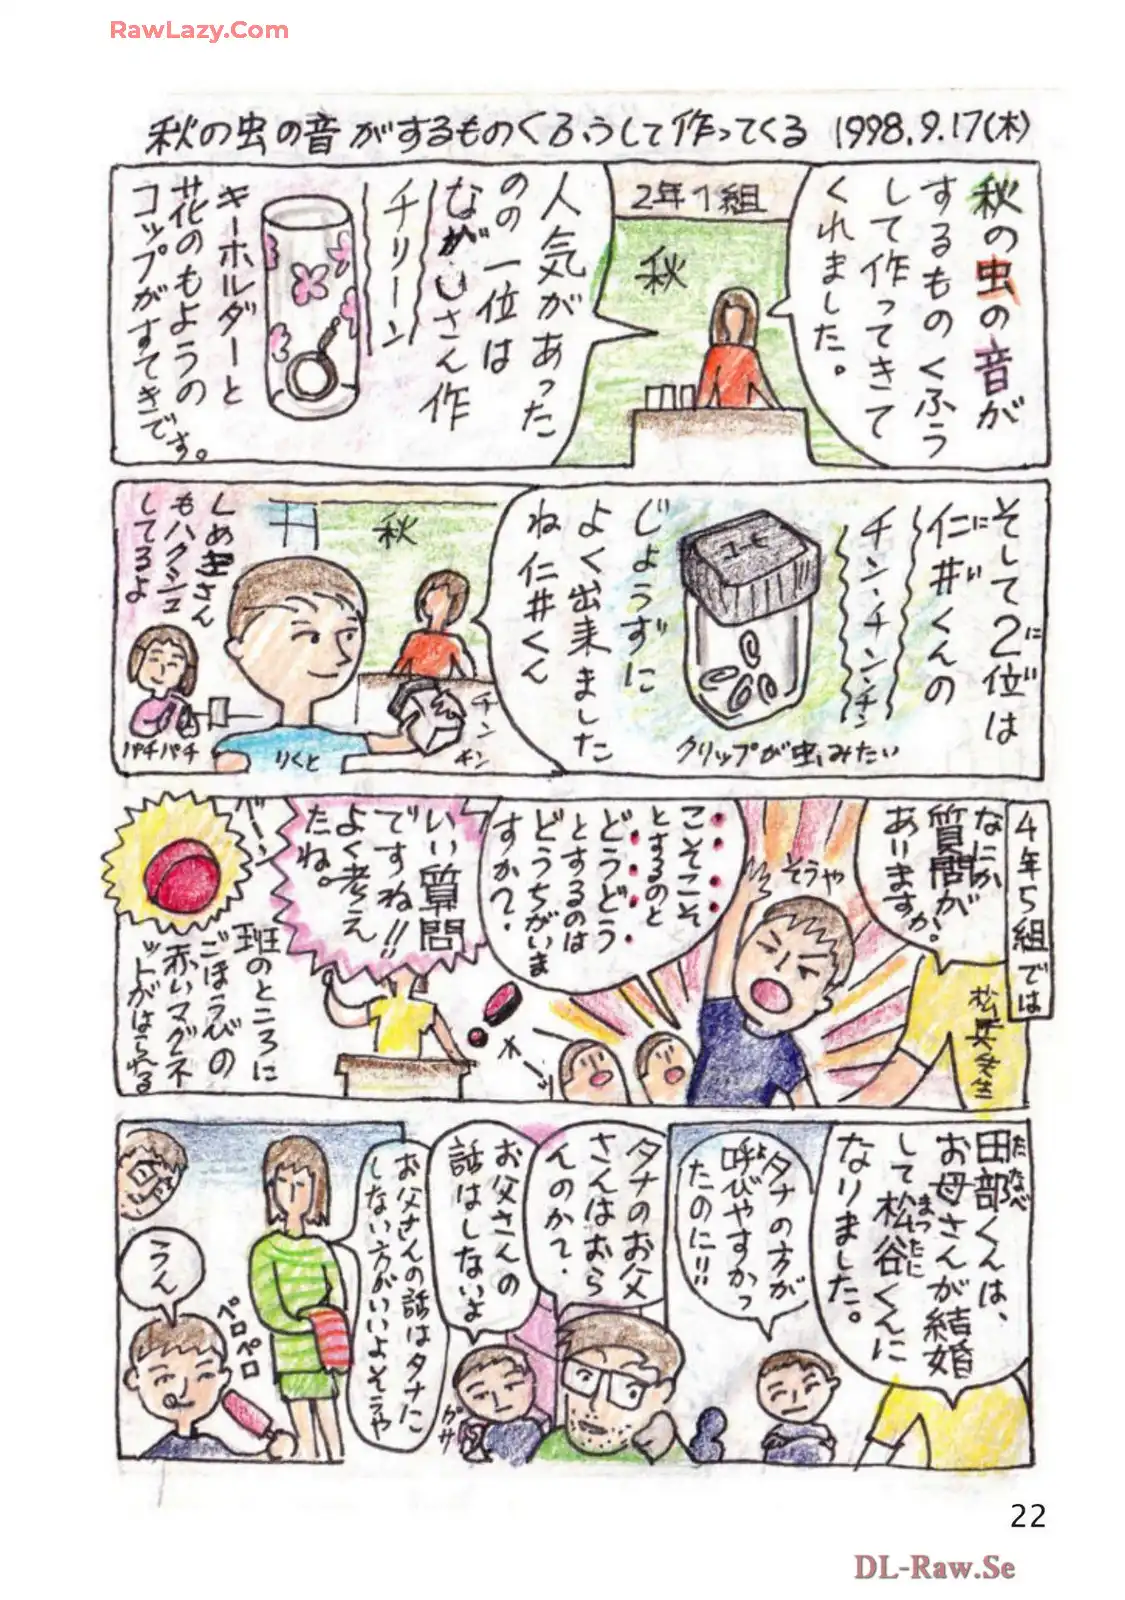 RawLazy.Com
秋の虫の音がするものくふうして作ってくる 1998.9.17(木)
秋の虫の音が
するものくふう
して作ってきて
くれました。
2年1組
秋
人気があった
のの一位は
ながいさん作
チリーン
キーホルダーと
花のもようの
コップがすてきです。
そして2位は
に
仁井くんの
にい
チン・チン・チン・チン
コーヒー
クリップが虫みたい
じょうずに
よく出来ました
ね仁井くん
秋
チン
チン
りくと
さん
もハクシュ
してるよ
パチパチ
4年5組では
なにか
質問が
ありますか。
松
先生
そうや
こそこそ
とするのと
どうどう
とするのは
どうちがいま
すか?
いい質問
ですね!!
よく考え
たね。
バーン
班のところに
ごほうびの
赤いマグネ
ットがはられる
田部くんは、
たなべ
お母さんが結婚
して松谷くんに
まつたに
なりました。
タナの方が
呼びやすかっ
よ
たのに!!
タナのお父
さんはおら
んのか?
お父さんの
話はしないよ
ガサ
お父さんの話はタナに
しない方がいいよそうや
うん
ペロペロ
22
DL-Raw.Se